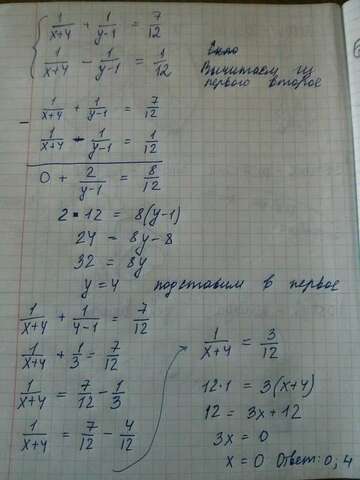 { 1/(x+4) + 1/(y-1) = 7/12
1/(x+4) - 1/(y-1) = 1/12
Вычитаем из
первого второе
- 1/(x+4) + 1/(y-1) = 7/12
1/(x+4) - 1/(y-1) = 1/12
0 + 2/(y-1) = 8/12
2 · 12 = 8(y-1)
24 = 8y-8
32 = 8y
y = 4 подставим в первое
1/(x+4) + 1/(4-1) = 7/12
1/(x+4) + 1/3 = 7/12
1/(x+4) = 7/12 - 1/3
1/(x+4) = 7/12 - 4/12
1/(x+4) = 3/12
12·1 = 3(x+4)
12 = 3x+12
3x = 0
x = 0 Ответ: 0, 4